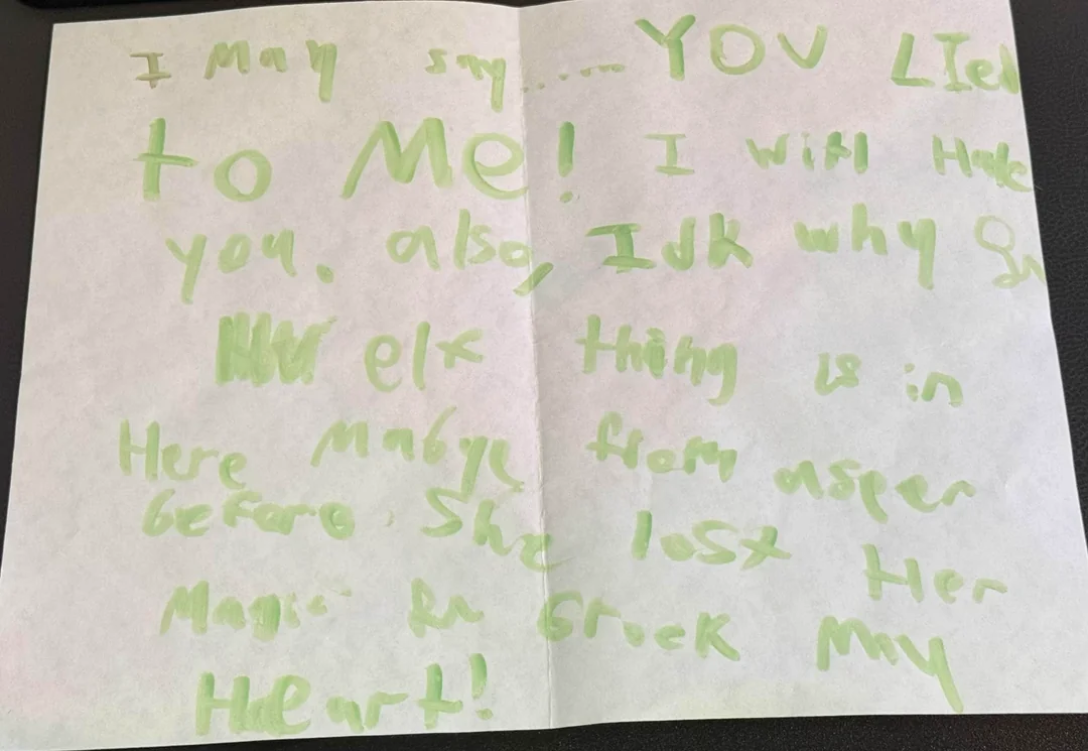 I May say...... YOU LIed
to Me! I will Hate
you. also, Idk why
elx thing is in
Here Mabye from asper
before She losx Her
Magic Brock My
Heart!